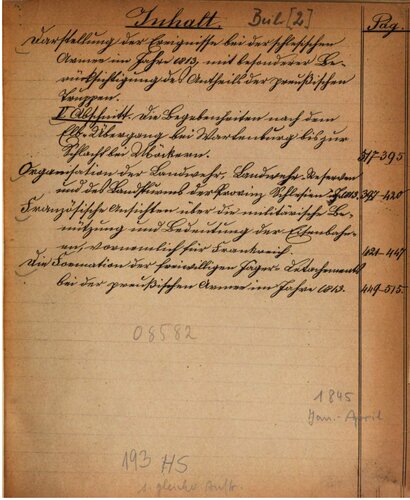 Inhalt. Beih [2] Pag.
Darstellung der Ereignisse bei der schlesischen
Armee im Jahre 1813, mit besonderer Be-
rücksichtigung des Antheils der preußischen
Truppen.
V. Abschnitt. Die Begebenheiten nach dem
Elb-Übergang bei Wartenburg bis zur
Schlacht bei Möckern. 317-395
Organisation der Landwehr, Landwehr-Reserven
und des Landsturms der Provinz Schlesien 1813. 397-420
Französische Ansichten über die militärische Be-
nützung und Bedeutung der Eisenbahn-
en, vornemlich für Frankreich. 421-447
Die Formation der freiwilligen Jäger-Detachements
bei der preußischen Armee im Jahre 1813. 449-515.
08582
1845
Jan.-April
193 HS
s. gleiche